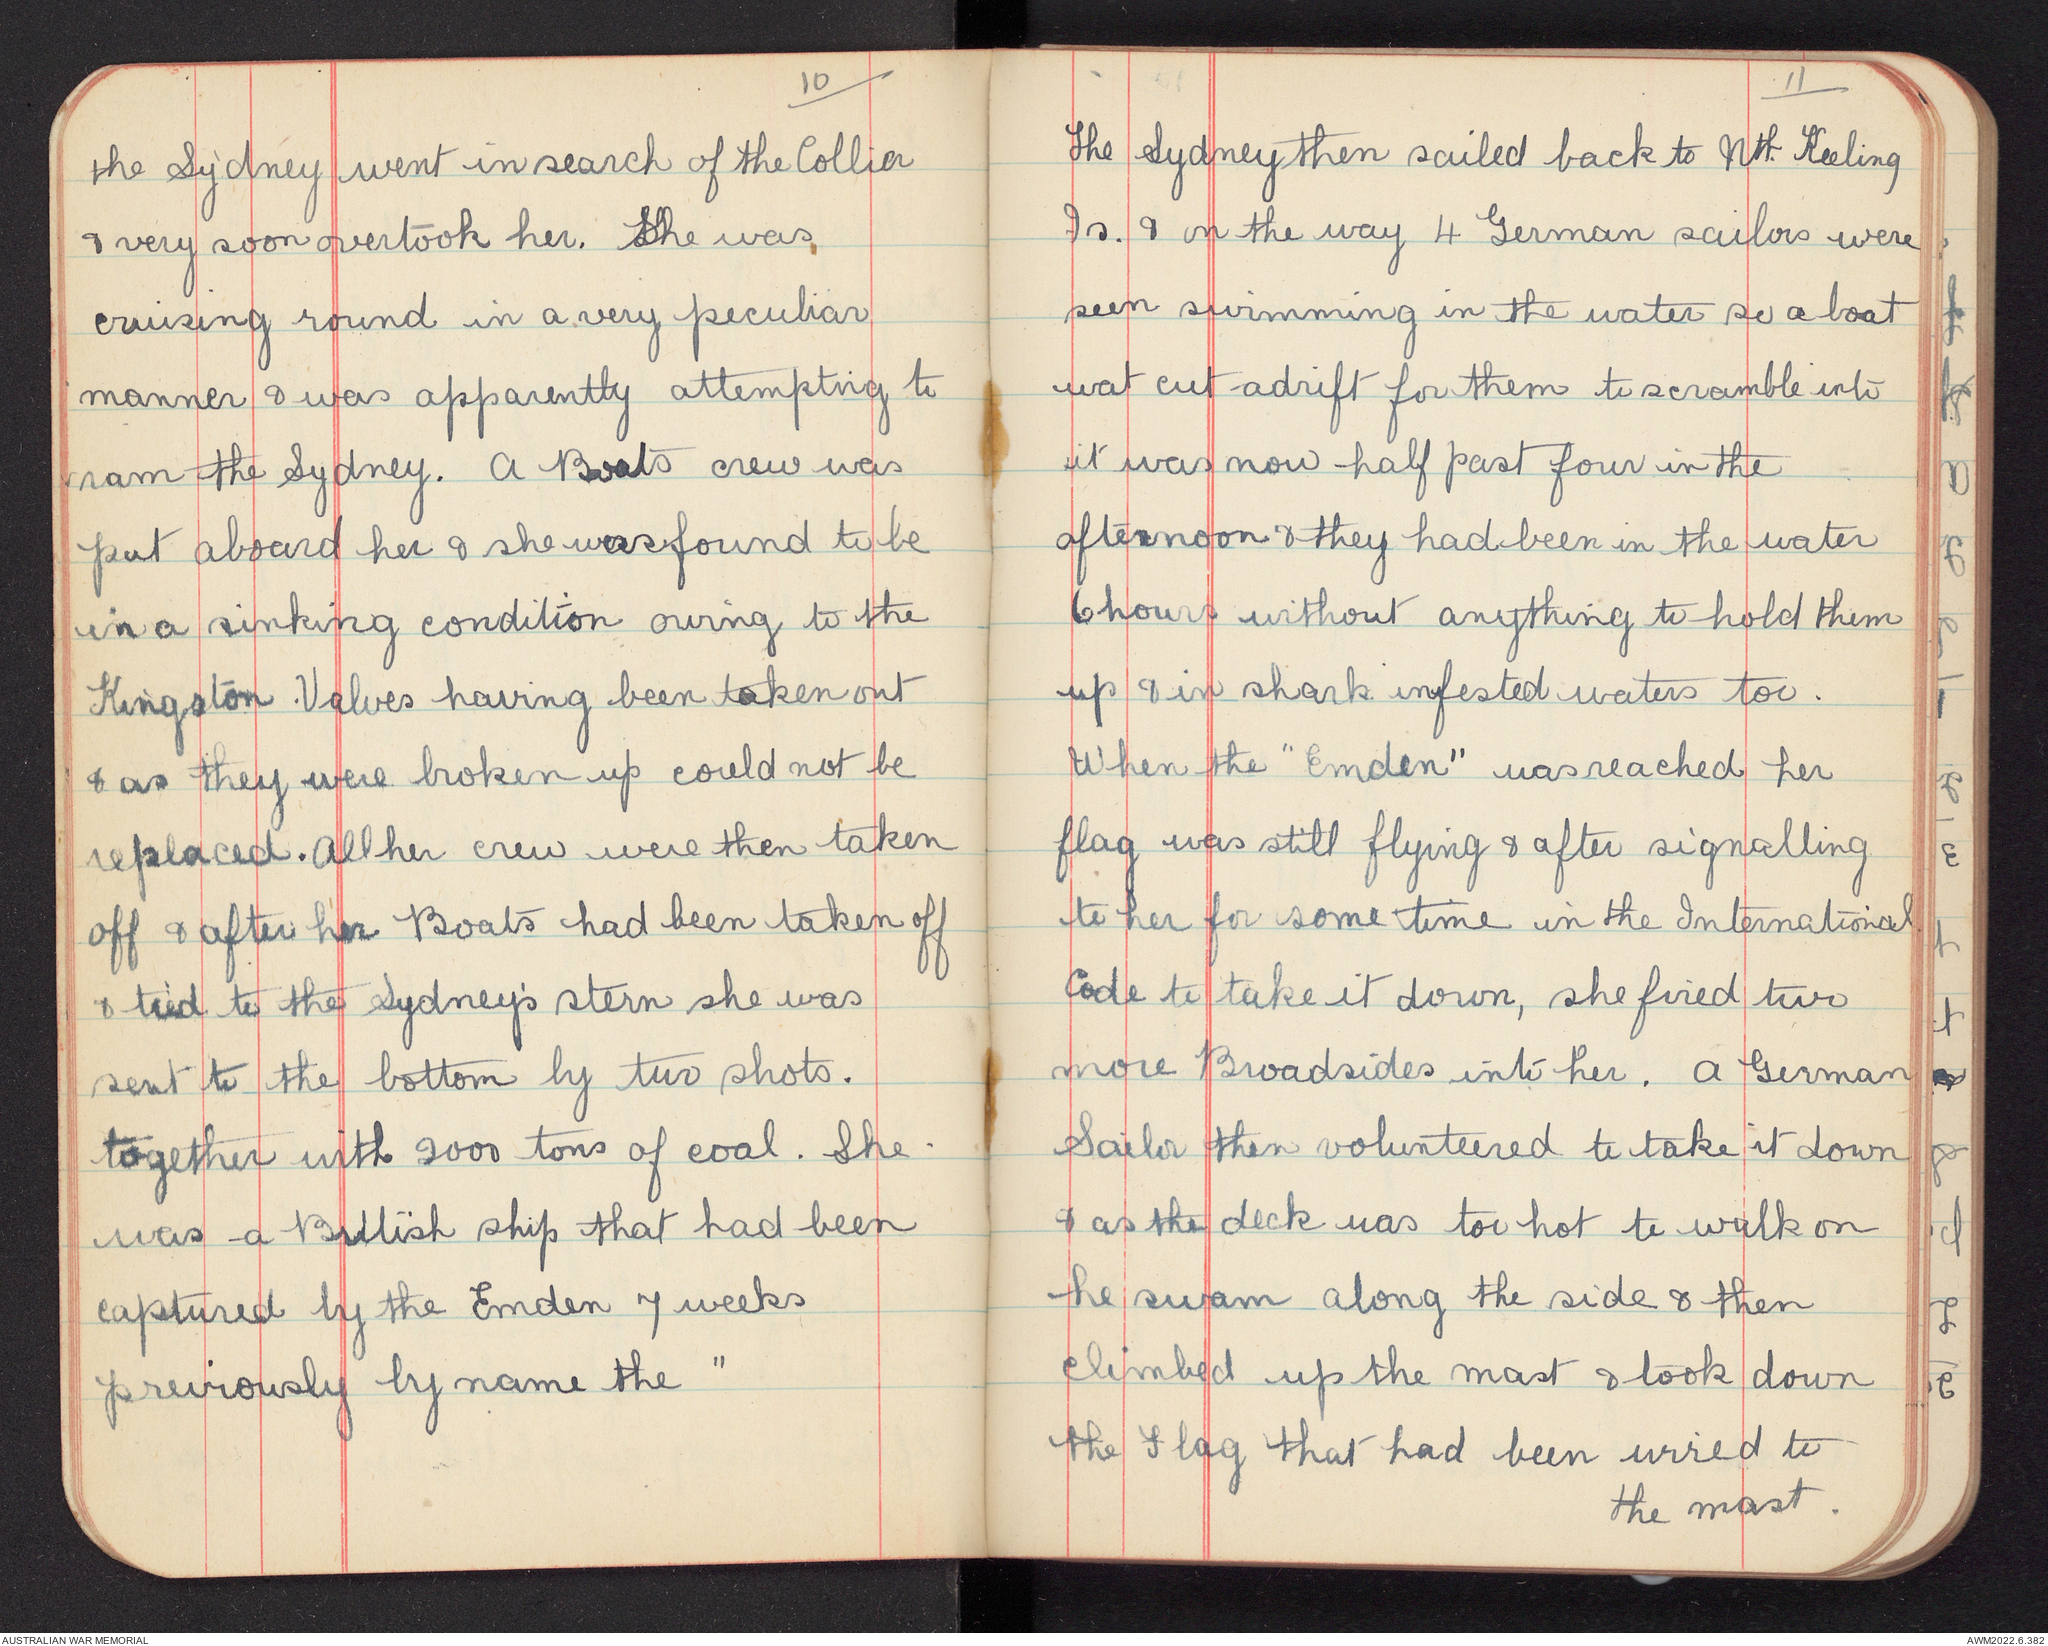 10
the Sydney went in search of the Collier
& very soon overtook her. She was
cruising round in a very peculiar
manner & was apparently attemptng to
ram the Sydney. A Boats crew was
put aboard her & she was found to be
in a sinking condition owing to the
Kingston Valves having been taken out
& as they were broken up could not be
replaced. All her crew were then taken
off & after her Boats had been taken off
& tied to the Sydney's stern she was
sent to the bottom by two shots.
together with 2000 tons of coal. She
was a British ship that had been
captured by the Emden 7 weeks
previously by name the "
11
The Sydney then sailed back to Nth. Keeling
Is. & on the way 4 German sailors were
seen swimming in the water so a boat
wat cut adrift for them to scramble into
it was now half past four in the
afternoon & they had been in the water
6 hours without anything to hold them
up & in shark infested waters too.
When the "Emden" was reached her
flag was still flying & after signalling
to her for some time in the International
Code to take it down, she fired two
more Broadsides into her. A German
Sailor then volunteered to take it down
& as the deck was too hot to walk on
he swam along the side & then
climbed up the mast & took down
the Flag that had been wired to
the mast.
AUSTRALIAN WAR MEMORIAL
AWM2022.6.382